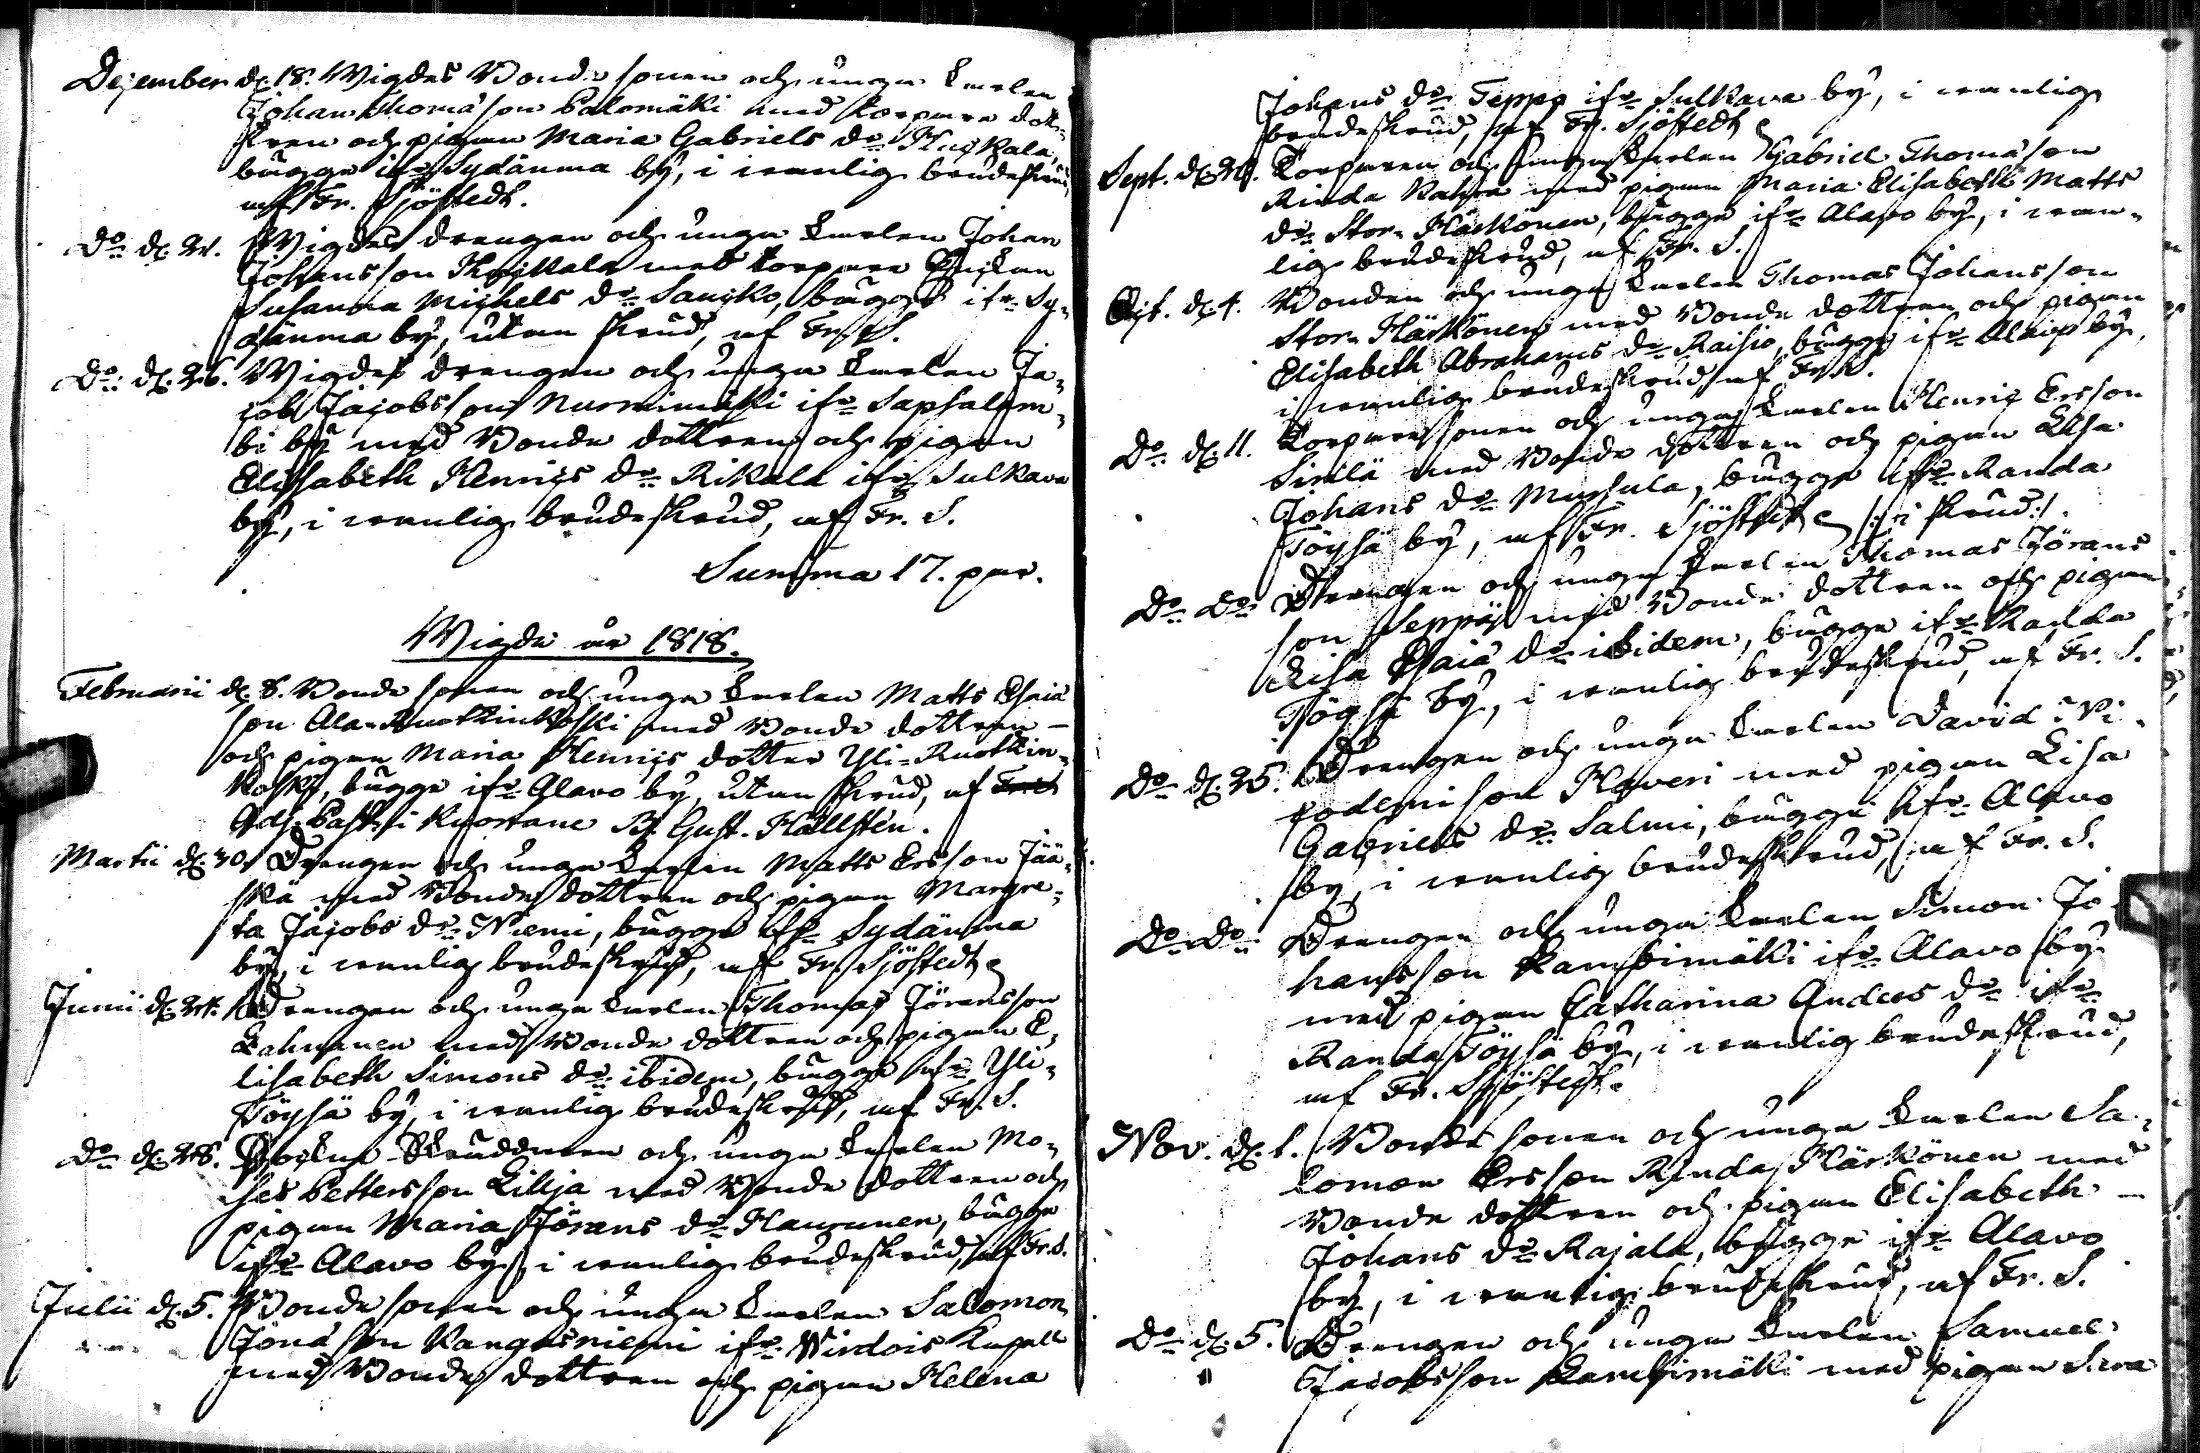 December d. 18. Wigdes Bonde sonen och unga karlen
Johan Thomasson Salomäki med torpare dott-
tren och pigan Maria Gabriels dr Kujkala,
bägge ifr. Sydänma by, i wanlig brudeskrud,
af Fr. Sjöstedt.
Do d. 21. Wigdes drengen och unga karlen Johan
Johansson Kujkala med torpare Enkan
Susanna Michels dr Saucko, bägge ifr. Sy-
dänma by, utan skrud, af Fr. S.
Do d. 26. Wigdes drengen och unga karlen Ja-
cob Jacobsson Nurmimäki ifr. Sapsalam-
bi by med Bonde dottren och pigan
Elisabeth Henrics dr Rikala ifr. Sulkava
by, i wanlig brudeskrud, af Fr. S.
Summa 17. par.
Wigde år 1818.
Februarii d. 8. Bonde sonen och unga karlen Matts Esaiæ
son Ala-Ruotkinkoski med Bonde dottren
och pigan Maria Henrics dotter Yli-Ruotkin-
koski, bägge ifr. Alavo by, utan skrud, af
Adj. Past. i Kuortane B. Gust. Hällsten.
Martii d. 30. Drengen och unga karlen Matts Ersson Jää-
skä med Bonde dottren och pigan Margre-
ta Jacobs dr Niemi, bägge ifr. Sydänma
by, i wanlig brudeskrud, af Fr. Sjöstedt
Junii d. 24. Drengen och unga karlen Thomas Jöransson
Lahnanen med Bonde dottren och pigan E-
lisabeth Simons dr ibidem, bägge ifr. Yli-
Töysä by, i wanlig brudeskrud, af Fr. S.
Do d. 28. Socku Skräddaren och unga karlen Mo-
ses Pettersson Lillja med Bonde dottren och
pigan Maria Jörans dr Haurunen, bägge
ifr. Alavo by, i wanlig brudeskrud, af Fr. S.
Julii d. 5. Bonde sonen och unga karlen Salomon
Jonæ son Kangasniemi ifr. Wirdois Kapell
med Bonde dottren och pigan Helena
Johans dr Seppä ifr. Sulkava by, i wanlig
brudeskrud, af Fr. Sjöstedt
Sept. d. 20. Torparen och unga karlen Gabriel Thomæson
Rinda Kahra med pigan Maria Elisabeth Matts
dr Stor-Härkönen, bägge ifr. Alavo by, i wan-
lig brudeskrud, af Fr. S.
Oct. d. 4. Bonden och unga karlen Thomas Johansson
Stor-Härkönen med Bonde dottren och pigan
Elisabeth Abrahams dr Raisio, bägge ifr. Alavo by,
i wanlig brudeskrud af Fr. S.
Do d. 11. Torparesonen och unga karlen Henric Ersson
Sirilä med Bonde dottren och pigan Lisa
Johans dr Mursula, bägge ifr. Randa
Töysä by, af Fr. Sjöstedt /: i skrud:/.
Do Do Drengen och unga karlen Thomas Jörans
son Seppä med Bonde dottren och pigan
Lisa Esaiæ dr ibidem, bägge ifr. Randa
Töysä by, i wanlig brudeskrud, af Fr. S.
Do d. 25. Drengen och unga karlen David Ni-
codemi son Haveri med pigan Lisa
Gabriels dr Salmi, bägge ifr. Alavo
by, i wanlig brudeskrud, af Fr. S.
Do Do Drengen och unga karlen Simon Jo
hansson Rambimäki ifr. Alavo by
med pigan Catharina Anders dr ifr.
Randa Töysä by, i wanlig brudeskrud,
af Fr. Sjöstedt.
Nov. d. 1. Bonde sonen och unga karlen Sa-
lomon Ersson Rinda Härkönen med
Bonde dottren och pigan Elisabeth
Johans dr Rajala, bägge ifr. Alavo
by, i wanlig brudeskrud, af Fr. S.
Do d. 5. Drengen och unga karlen Samuel
Jacobsson Rambimäki med pigan Sara